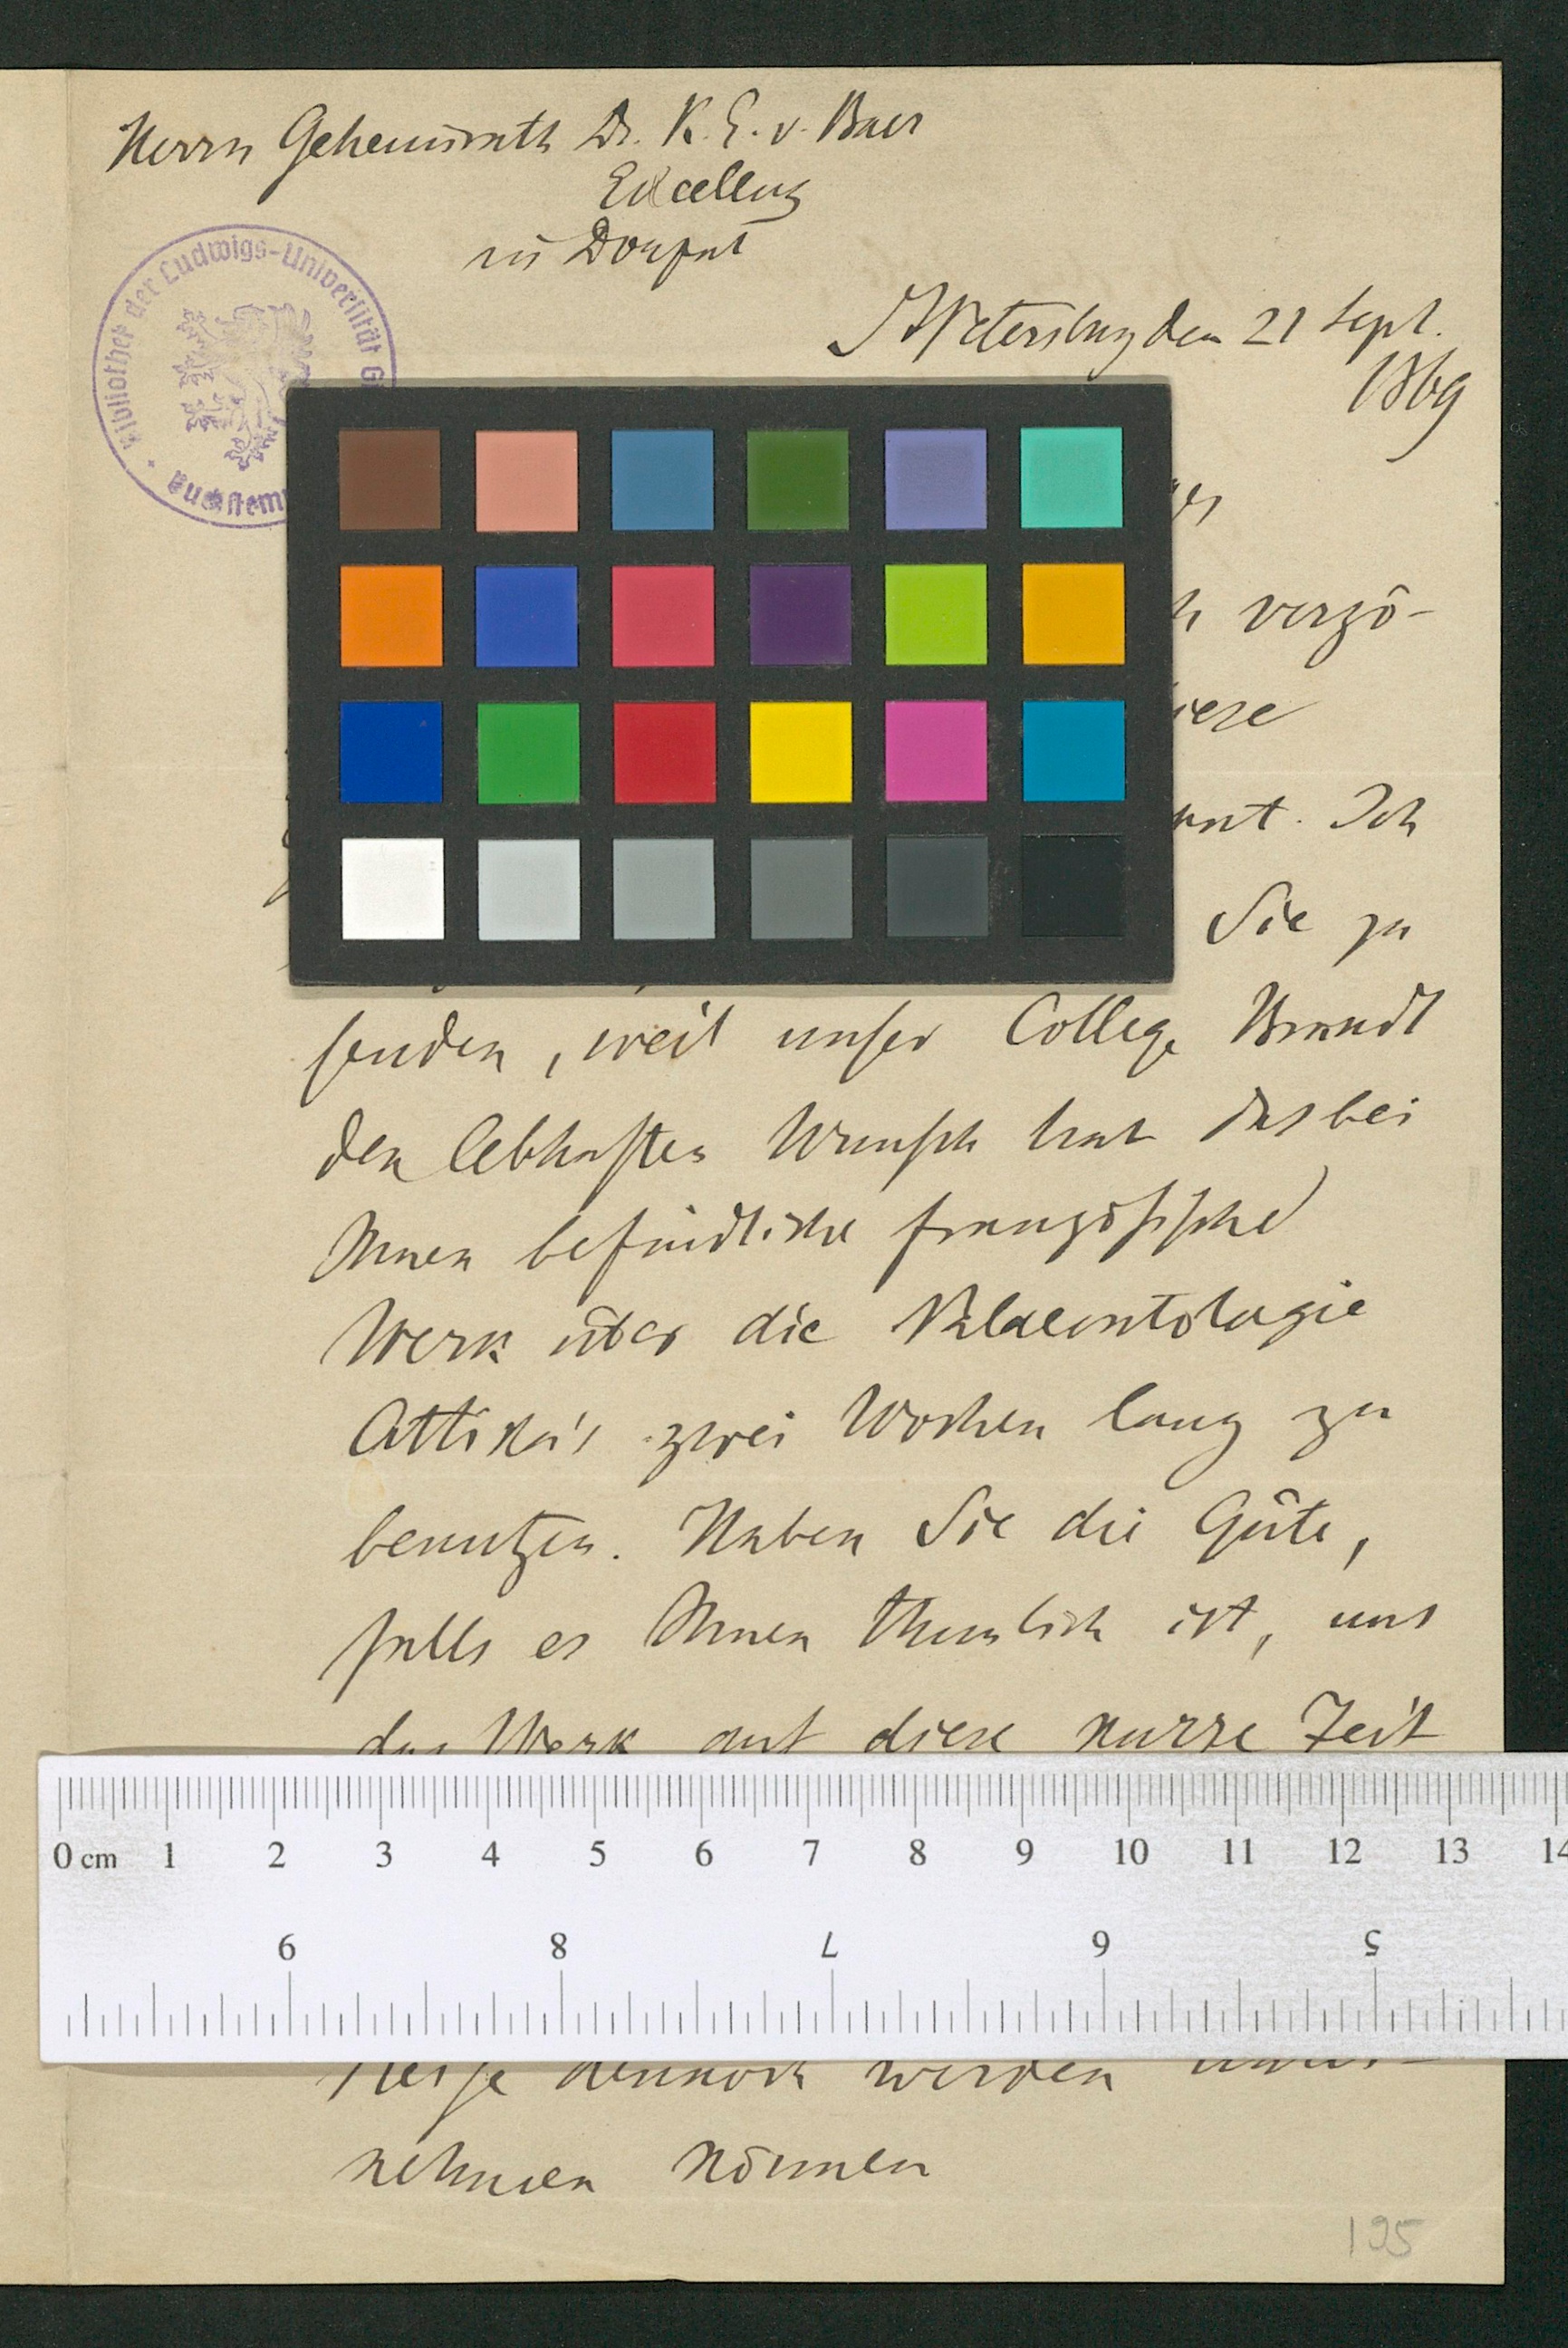 Herrn Geheimrath Dr. K. E. v. Baer
Excellenz
in Dorpat
Bibliothek der Ludwigs-Universität G
St Petersburg den 21 Sept.
1869
verzö-
iese
Ich
Sie zu
senden, weil unser College Brandt
den lebhaften Wunsch hat das bei
Ihnen befindliche französische
Werk über die Palaeontologie
Attika's zwei Wochen lang zu
benutzen. Haben Sie die Güte,
falls es Ihnen thunlich ist, uns
das Werk auf diese kurze Zeit
0 cm 1 2 3 4 5 6 7 8 9 10 11 12 13 14
9 8 7 6 5
dennoch werden
nehmen können
195